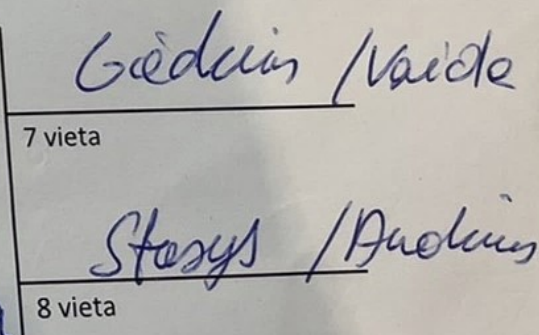 Giedrius /Vaida
7 vieta
Stasys /Andrius
8 vieta